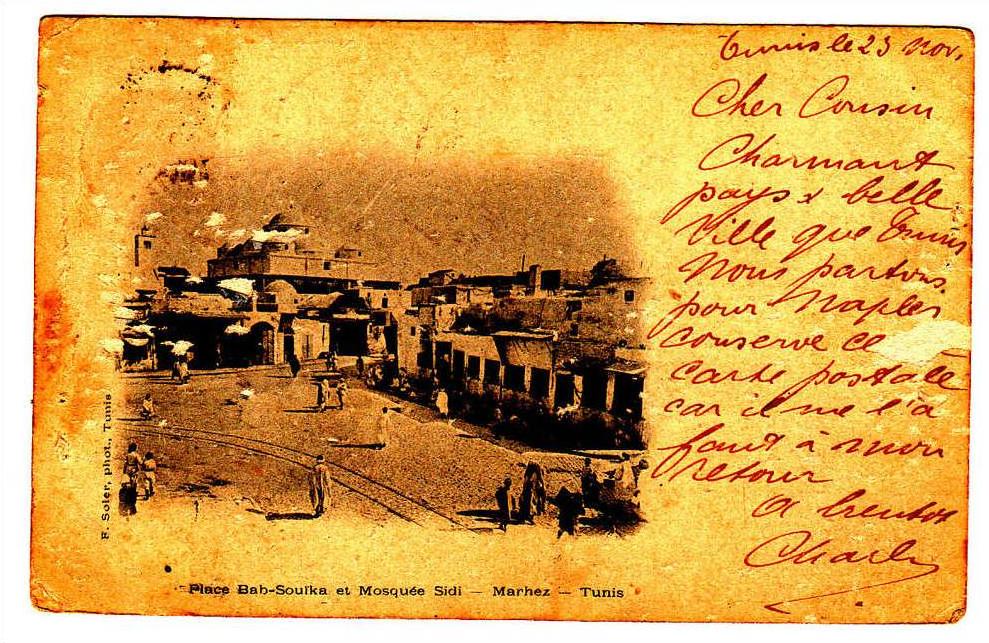 Tunis le 23 nov.
Cher Cousin
Charmant
pays & belle
Ville que Tunis
Nous partons
pour Naples
conserve ce
carte postale
car il me l'a
faut à mon
retour
A bientot
Charles
F. Soler, phot., Tunis
Place Bab-Souïka et Mosquée Sidi — Marhez — Tunis